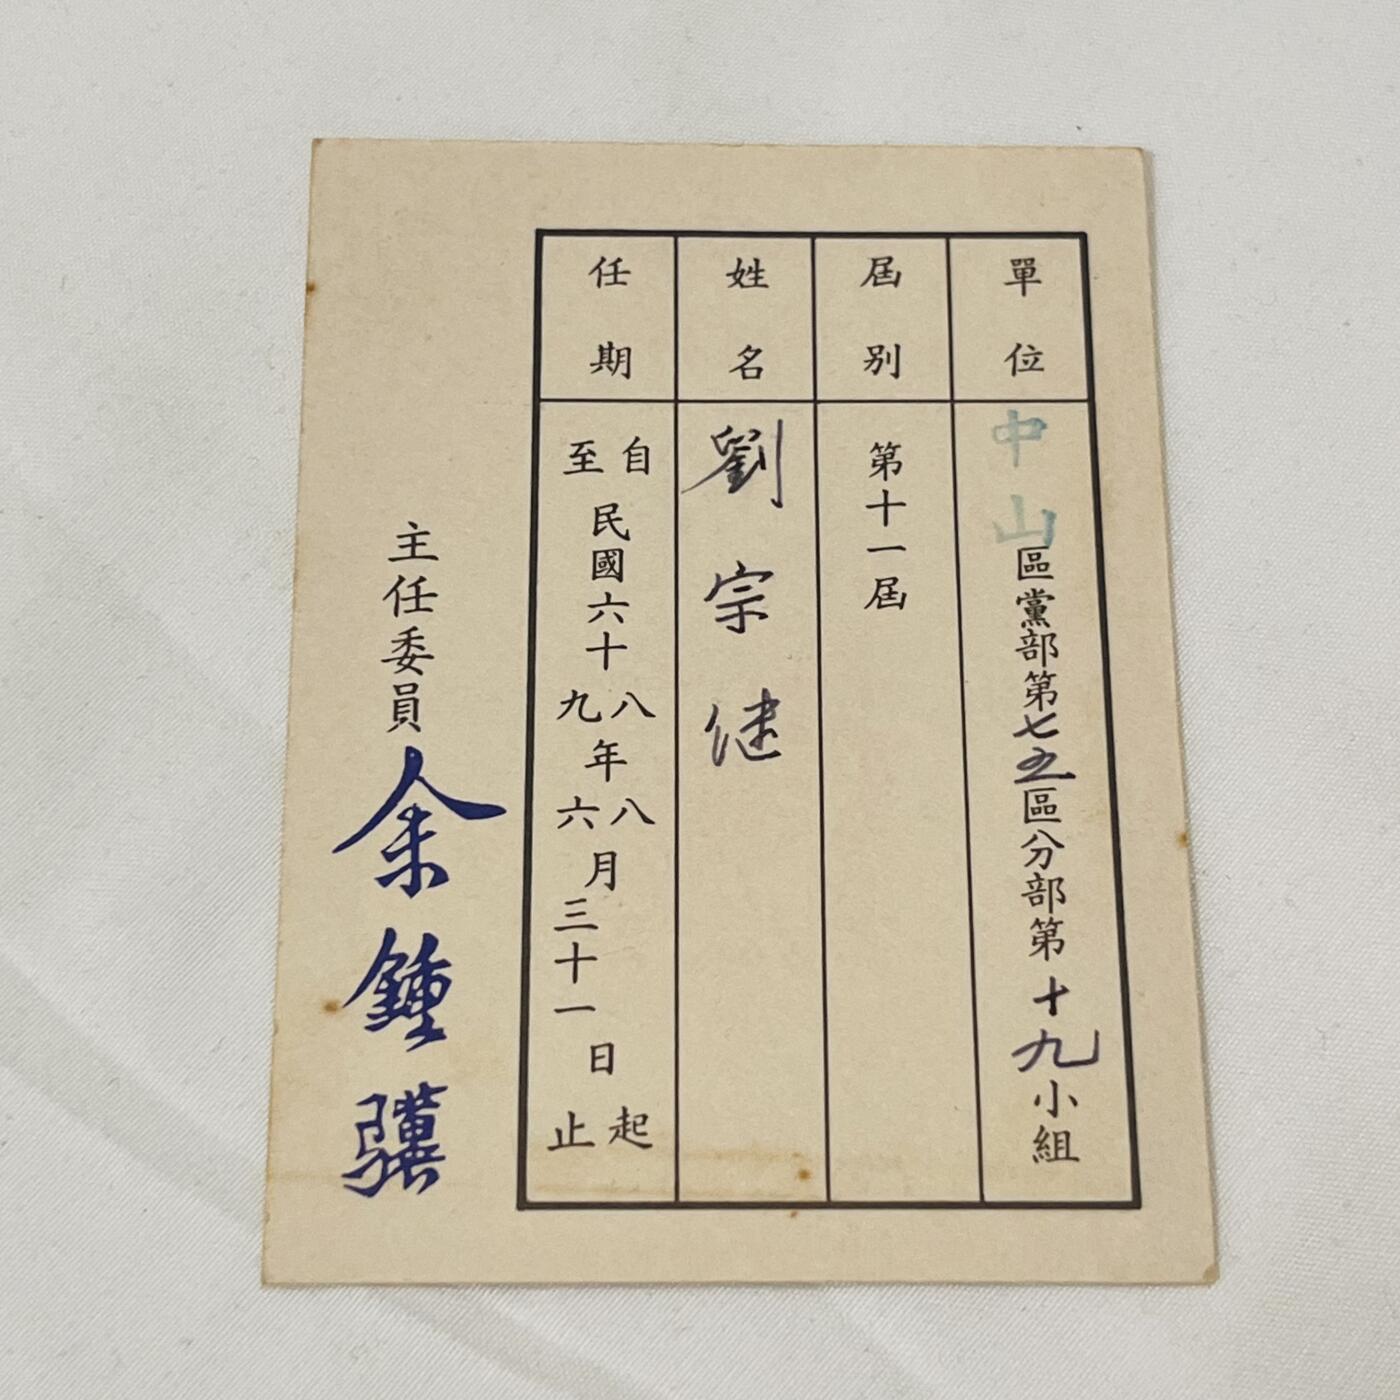 單位
中山區黨部第七五區分部第十九小組
屆別
第十一屆
姓名
劉宗健
任期
自至民國六十八九年八六月三十一日起止
主任委員余鍾驥